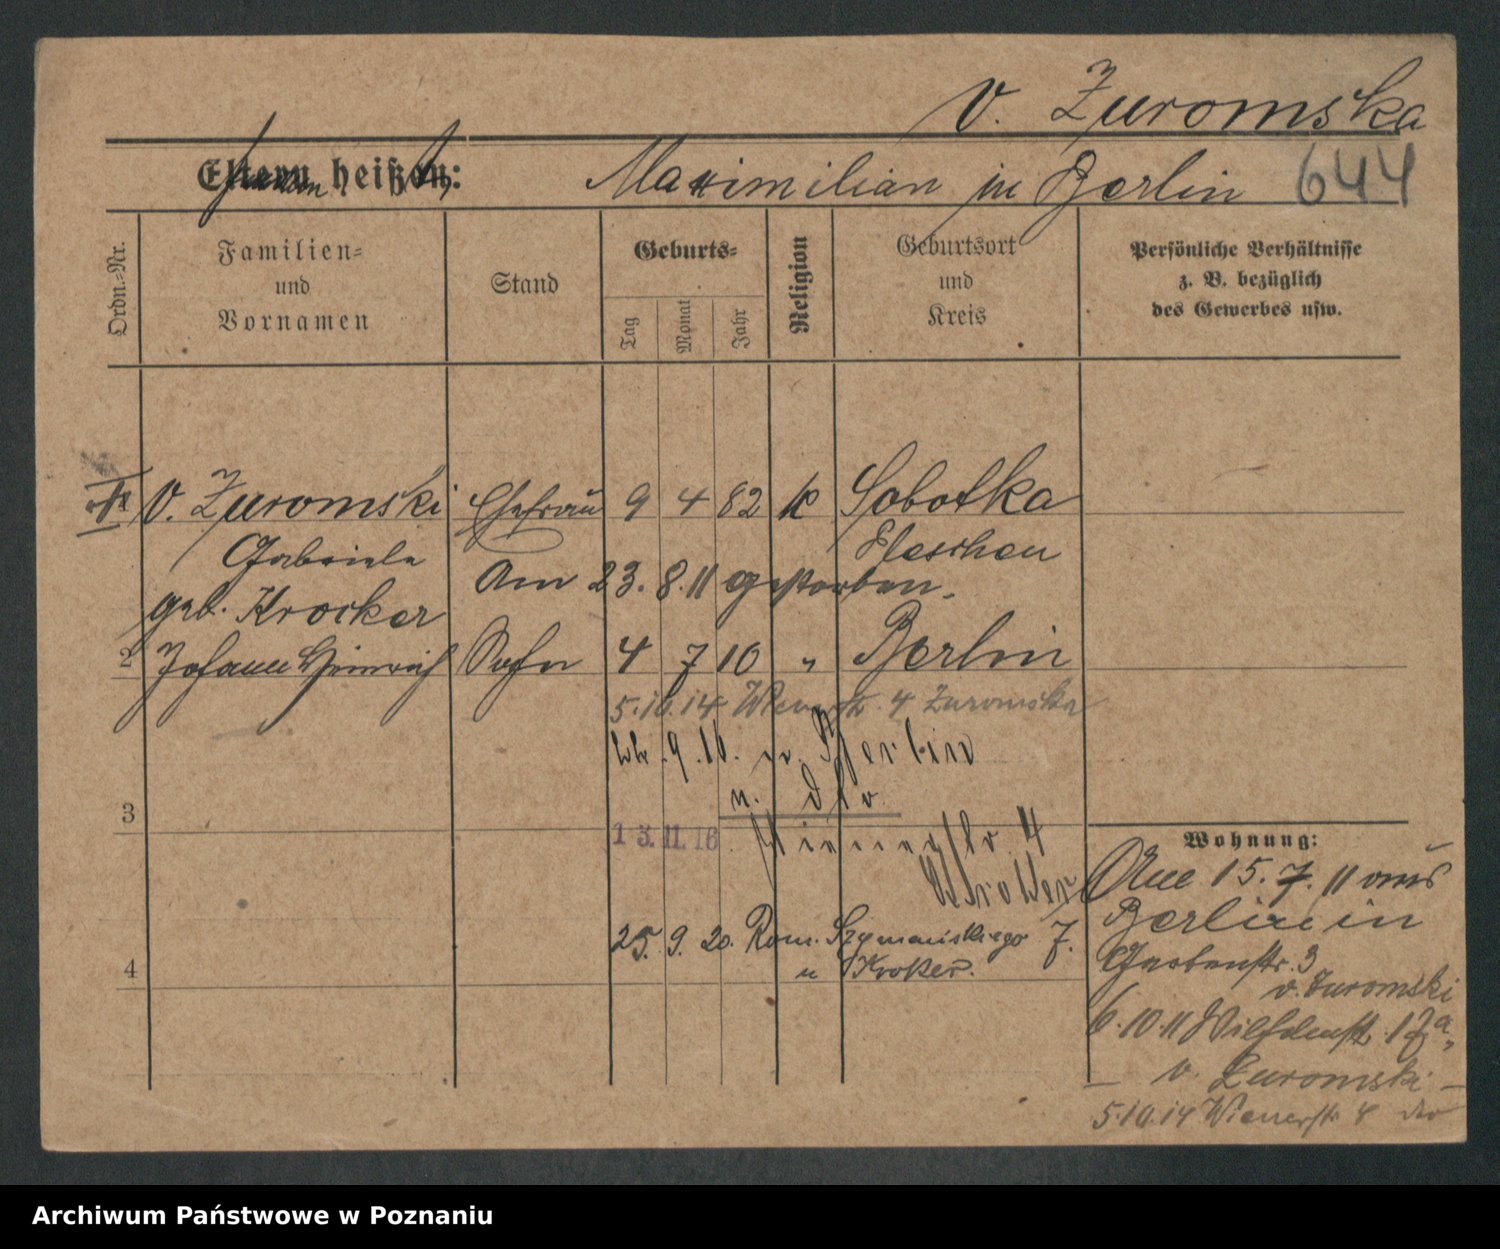 v. Zuromska
Eltern heißen: Maximilian in Berlin 644
Ordn.-Nr.
Familien-
und
Vornamen
Stand
Geburts-
Tag
Monat
Jahr
Religion
Geburtsort
und
Kreis
Persönliche Verhältnisse
z. B. bezüglich
des Gewerbes usw.
v. Zuromski Ehefrau 9 4 82 k Sobotka
Gabriele Pleschen
Am 23. 8. 11 gestorben.
geb. Krocker
2 Johann Heinrich Sohn 4 7 10 " Berlin
5.10.14 Wienerstr. 4 Zuromska
9.10. Berlin
3
13.11.16 Wienerstr. 4
Kroker
25. 9. 20. Rom. Szymańskiego 7.
4
u Kroker.
Wohnung:
15. 7. 11 aus
Berlin in
Gartenstr. 3
v. Zuromski
6.10.11 17a
v. Zuromski
5.10.14 Wienerstr. 4
Archiwum Państwowe w Poznaniu